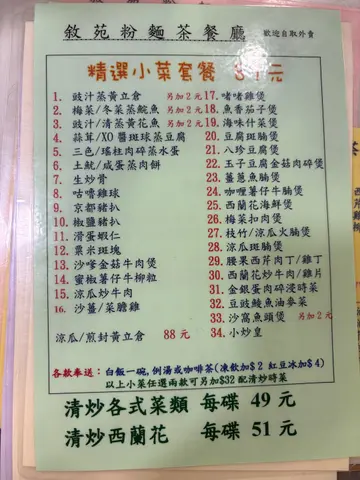 敘苑粉麵茶餐廳 歡迎自取外賣
精選小菜套餐 元
1. 豉汁蒸黃立倉 另加2元
2. 梅菜/冬菜蒸鯇魚 另加2元
3. 豉汁/清蒸黃花魚 另加2元
4. 蒜茸/XO醬斑球蒸豆腐
5. 三色/瑤柱肉碎蒸水蛋
6. 土魷/咸蛋蒸肉餅
7. 生炒骨
8. 咕嚕雞球
9. 京都豬扒
10. 椒鹽豬扒
11. 滑蛋蝦仁
12. 粟米斑塊
13. 沙嗲金菇牛肉煲
14. 蜜椒薯仔牛柳粒
15. 涼瓜炒牛肉
16. 沙薑/菜膽雞
涼瓜/煎封黃立倉 88 元
17. 啫啫雞煲
18. 魚香茄子煲
19. 海味什菜煲
20. 豆腐斑腩煲
21. 八珍豆腐煲
22. 玉子豆腐金菇肉碎煲
23. 薑蔥魚腩煲
24. 咖喱薯仔牛腩煲
25. 西蘭花海鮮煲
26. 梅菜扣肉煲
27. 枝竹/涼瓜火腩煲
28. 涼瓜斑腩煲
29. 腰果西芹肉丁/雞丁
30. 西蘭花炒牛肉/雞片
31. 金銀蛋肉碎浸時菜
32. 豆豉鯪魚油麥菜
33. 沙窩魚頭煲 另加2元
34. 小炒皇
各款奉送：白飯一碗,例湯或咖啡茶(凍飲加$2 紅豆冰加$4)
以上小菜任選兩款可另加$32 配清炒時菜
清炒各式菜類 每碟 49 元
清炒西蘭花 每碟 51 元